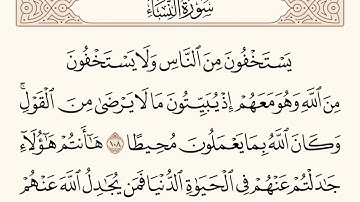 سُورَةُ النِّسَاءِ
يَسْتَخْفُونَ مِنَ ٱلنَّاسِ وَلَا يَسْتَخْفُونَ
مِنَ ٱللَّهِ وَهُوَ مَعَهُمْ إِذْ يُبَيِّتُونَ مَا لَا يَرْضَىٰ مِنَ ٱلْقَوْلِ ۚ
وَكَانَ ٱللَّهُ بِمَا يَعْمَلُونَ مُحِيطًا ١٠٨ هَٰٓأَنتُمْ هَٰٓؤُلَآءِ
جَٰدَلْتُمْ عَنْهُمْ فِى ٱلْحَيَوٰةِ ٱلدُّنْيَا فَمَن يُجَٰدِلُ ٱللَّهَ عَنْهُمْ